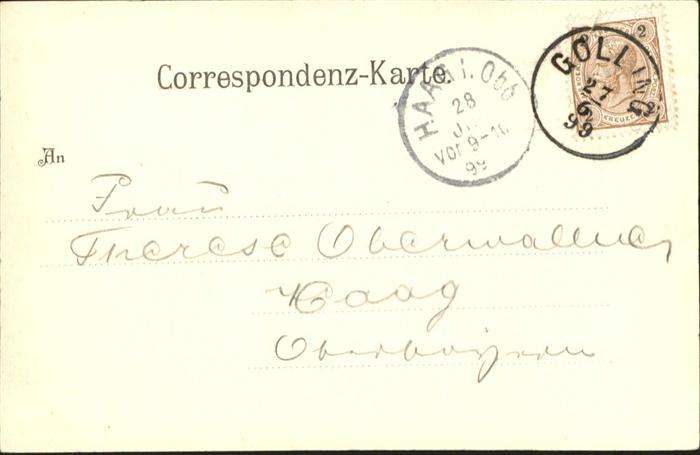 Correspondenz-Karte.
HAAG i. Obb
28
Vor 9-10
99
GOLLING
27
6
99
2
KREUZER
An
Frau
Therese Oberwallner
Haag
Oberbayern